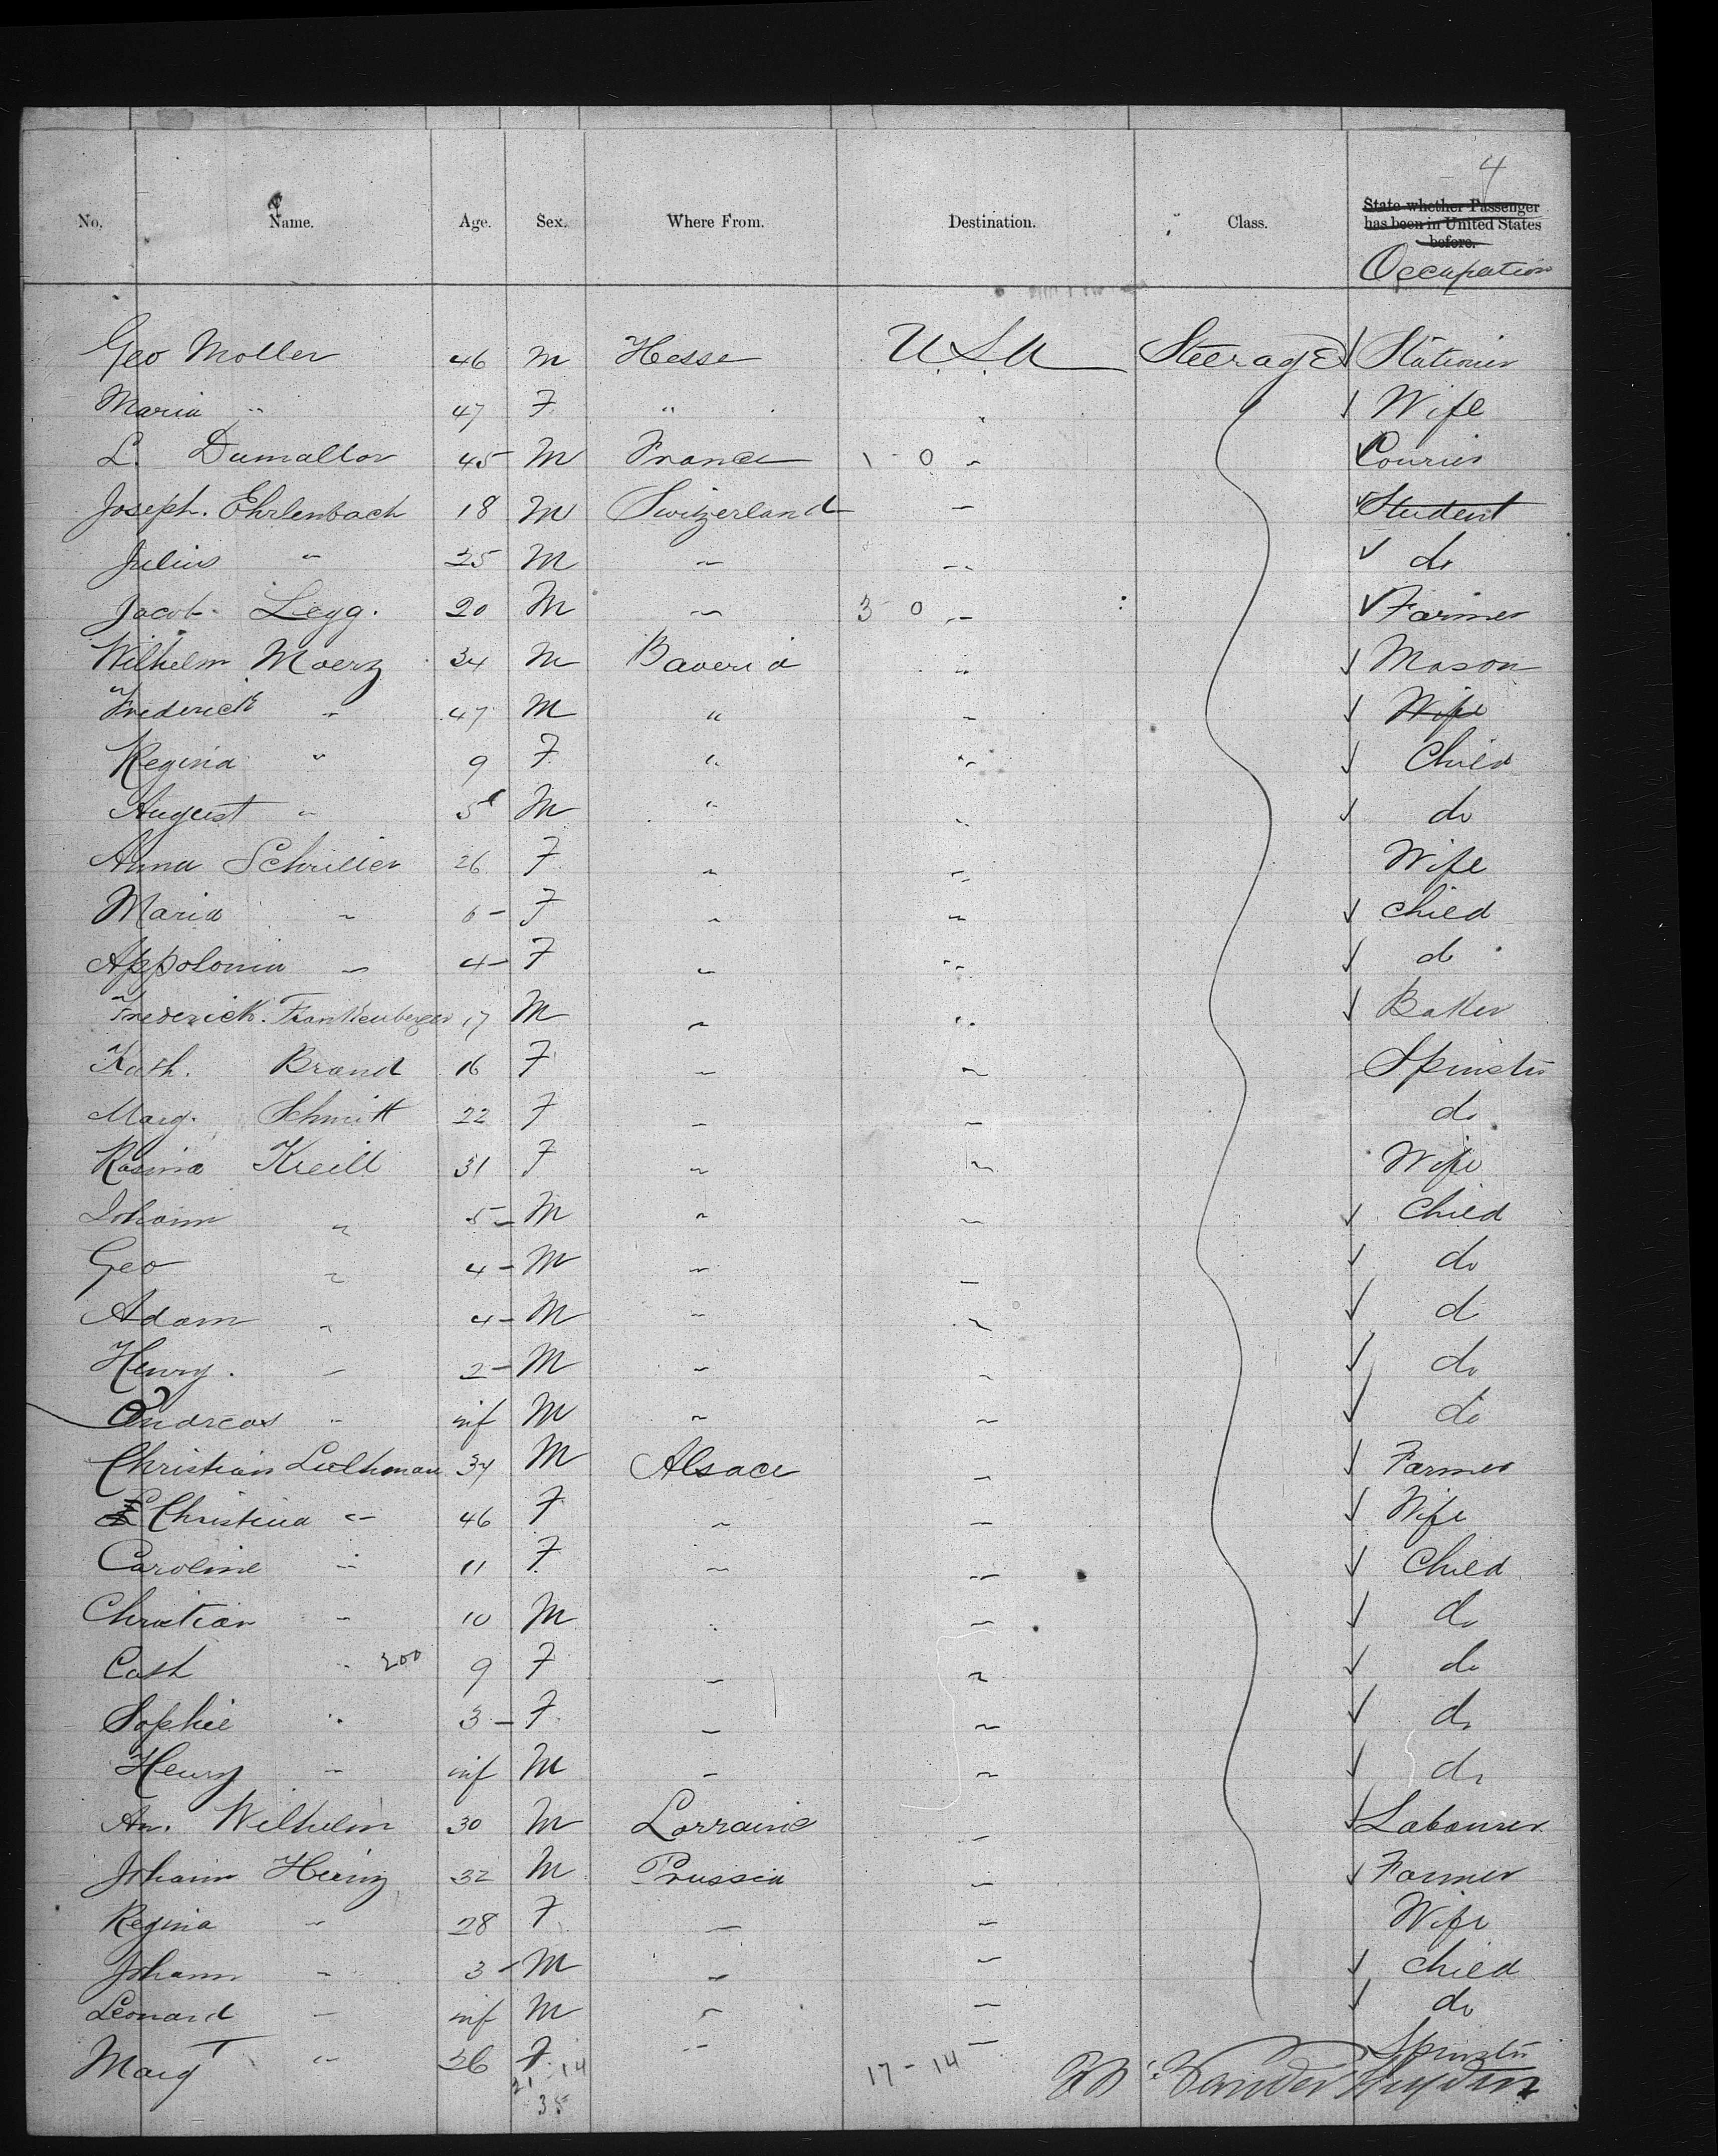 4
No. Name. Age. Sex. Where From. Destination. Class. State whether Passenger has been in United States before. Occupation
Geo Moller 46 M Hesse U.S.A Steerage Stationer
Maria " 47 F " " Wife
L. Dumallor 45 M France 1 - 0 " Courier
Joseph. Ehrlenbach 18 M Switzerland " Student
Julius " 25 M " " do
Jacob Legg. 20 M " 3 - 0 " Farmer
Wilhelm Moerz 34 M Baveria " Mason
Frederick " 47 M " " Wife
Regina " 9 F " " Child
August " 5 M " " do
Anna Schriller 26 F " " Wife
Maria " 6 - F " " child
Appolonia " 4 - F " " do
Frederick. Frankenberger 17 M " " Baker
Kath. Brand 16 F " " Spinster
Marg. Schmitt 22 F " " do
Rosina Kreill 31 F " " Wife
Johann " 5 - M " " Child
Geo " 4 - M " " do
Adam " 4 - M " " do
Henry. " 2 - M " " do
Andreas " inf M " " do
Christian 34 M Alsace " Farmer
Christina " 46 F " " Wife
Caroline " 11 F " " Child
Christian " 10 M " " do
Cath " 200 9 F " " do
Sophie " 3 - F " " do
Henry " inf M " " do
An. Wilhelm 30 M Lorraine " Labourer
Johann Heinz 32 M Prussia " Farmer
Regina " 28 F " " Wife
Johann " 3 - M " " child
Leonard " inf M " " do
Marg " 26 F " " Spinster
21 14 17 - 14
35